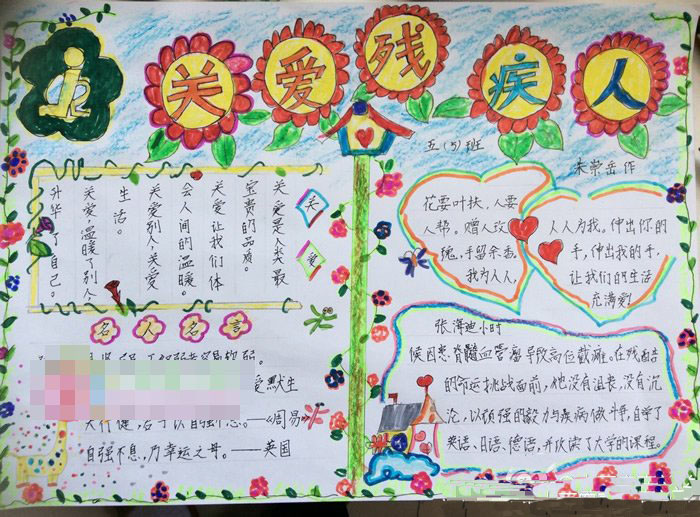 关爱残疾人
五(5)班
朱崇岳作
关爱
关爱是人类最
宝贵的品质。
关爱让我们体
会人间的温暖。
关爱别人,关爱
生活。
关爱,温暖了别人,
升华了自己。
花要叶扶,人要
人帮。赠人玫
瑰,手留余香。
我为人人,
人人为我。伸出你的
手,伸出我的手,
让我们的生活
充满爱!
名人名言
爱默生
天行健,君子以自强不息。——《周易》
自强不息,乃幸运之母。——英国
张海迪小时
候因患脊髓血管瘤导致高位截瘫。在残酷
的命运挑战面前,他没有沮丧,没有沉
沦,以顽强的毅力与疾病做斗争,自学了
英语、日语、德语,并攻读了大学的课程。